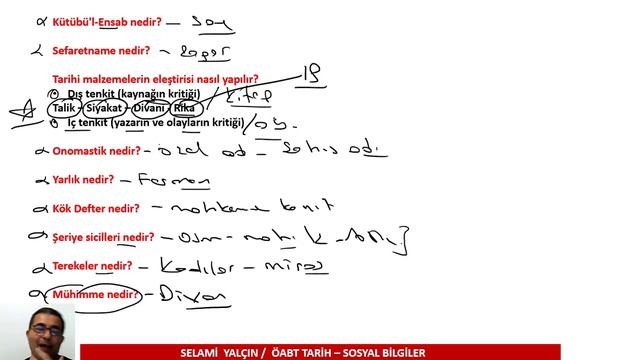 Kütübü'l-Ensab nedir? – Soy
Sefaretname nedir? –
Tarihi malzemelerin eleştirisi nasıl yapılır?
Dış tenkit (kaynağın kritiği) Kitap
Talik – Siyakat – Divani – Rika
İç tenkit (yazarın ve olayların kritiği)
Onomastik nedir? – özel ad – şahıs adı
Yarlık nedir? – Ferman
Kök Defter nedir? – mahkeme
Şeriye sicilleri nedir? –
Terekeler nedir? – Kadılar – miras
Mühimme nedir? – Divan
SELAMİ YALÇIN / ÖABT TARİH – SOSYAL BİLGİLER